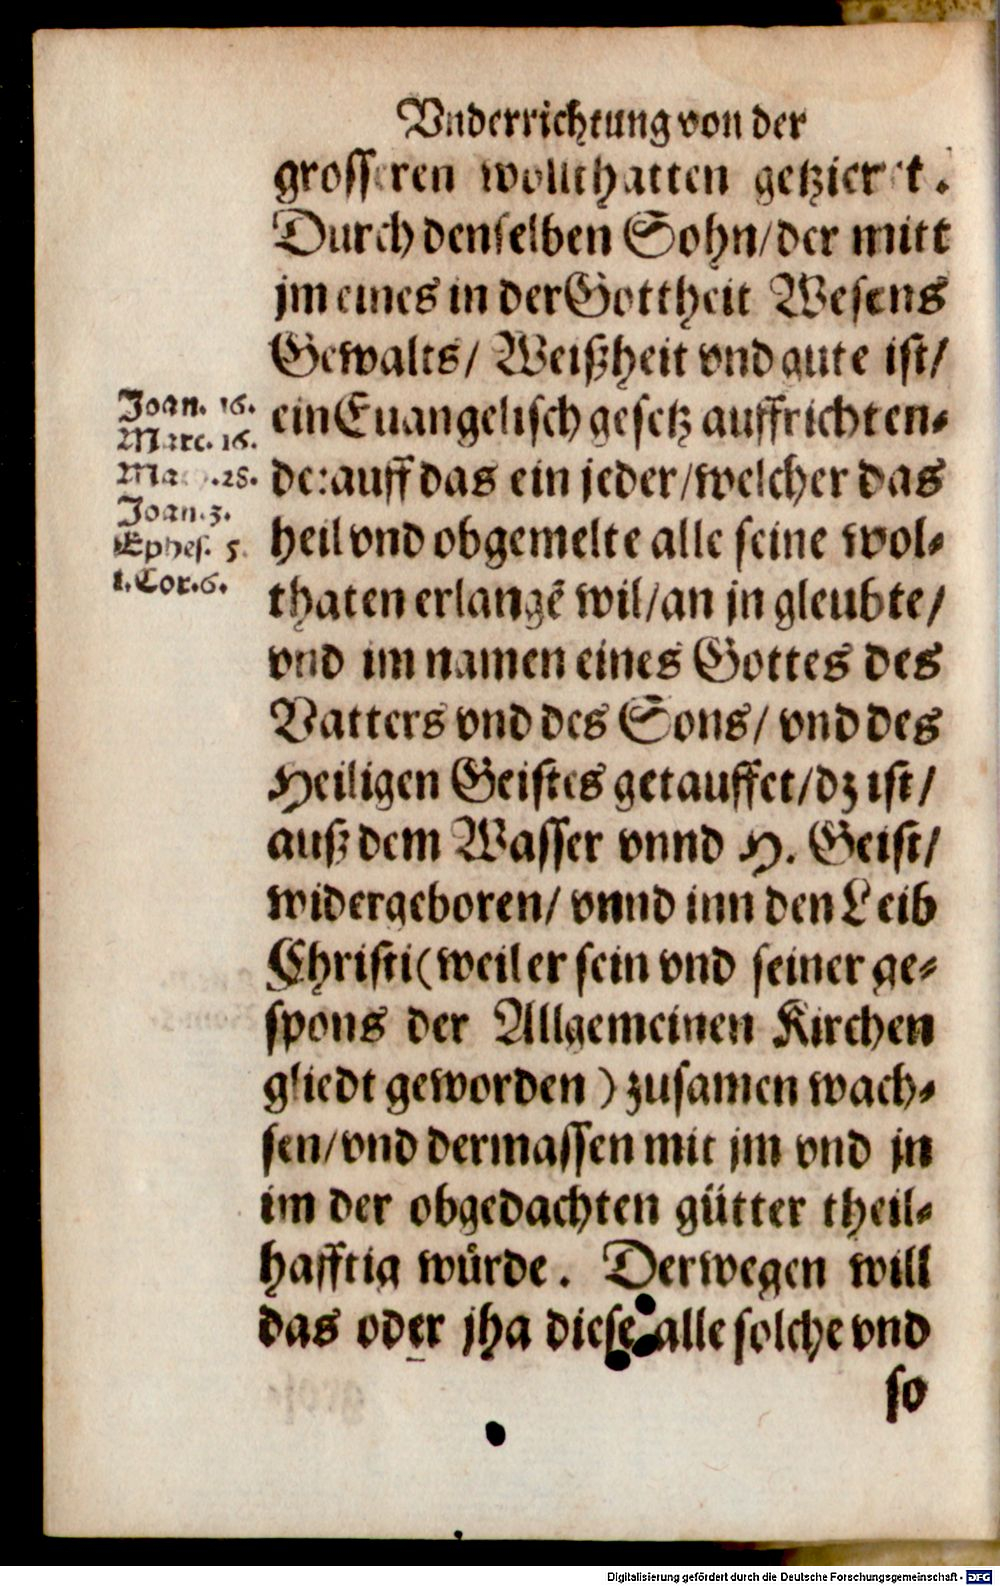 Vnderrichtung von der
grosseren wollthatten getzieret.
Durch denselben Sohn/der mitt
jm eines in der Gottheit Wesens
Gewalts/ Weißheit vnd gute ist/
ein Euangelisch gesetz auffrichten-
de: auff das ein jeder/welcher das
heil vnd obgemelte alle seine wol-
thaten erlangē wil/an jn gleubte/
vnd im namen eines Gottes des
Vatters vnd des Sons/ vnd des
Heiligen Geistes getauffet/dz ist/
auß dem Wasser vnnd H. Geist/
widergeboren/ vnnd inn den Leib
Christi (weil er sein vnd seiner ge-
spons der Allgemeinen Kirchen
gliedt geworden) zusamen wach-
sen/vnd dermassen mit jm vnd jn
im der obgedachten gütter theil-
hafftig würde. Derwegen will
das oder jha diese alle solche vnd
so
Joan. 16.
Marc. 16.
Math. 28.
Joan. 3.
Ephes. 5.
1. Cor. 6.
Digitalisierung gefördert durch die Deutsche Forschungsgemeinschaft - DFG